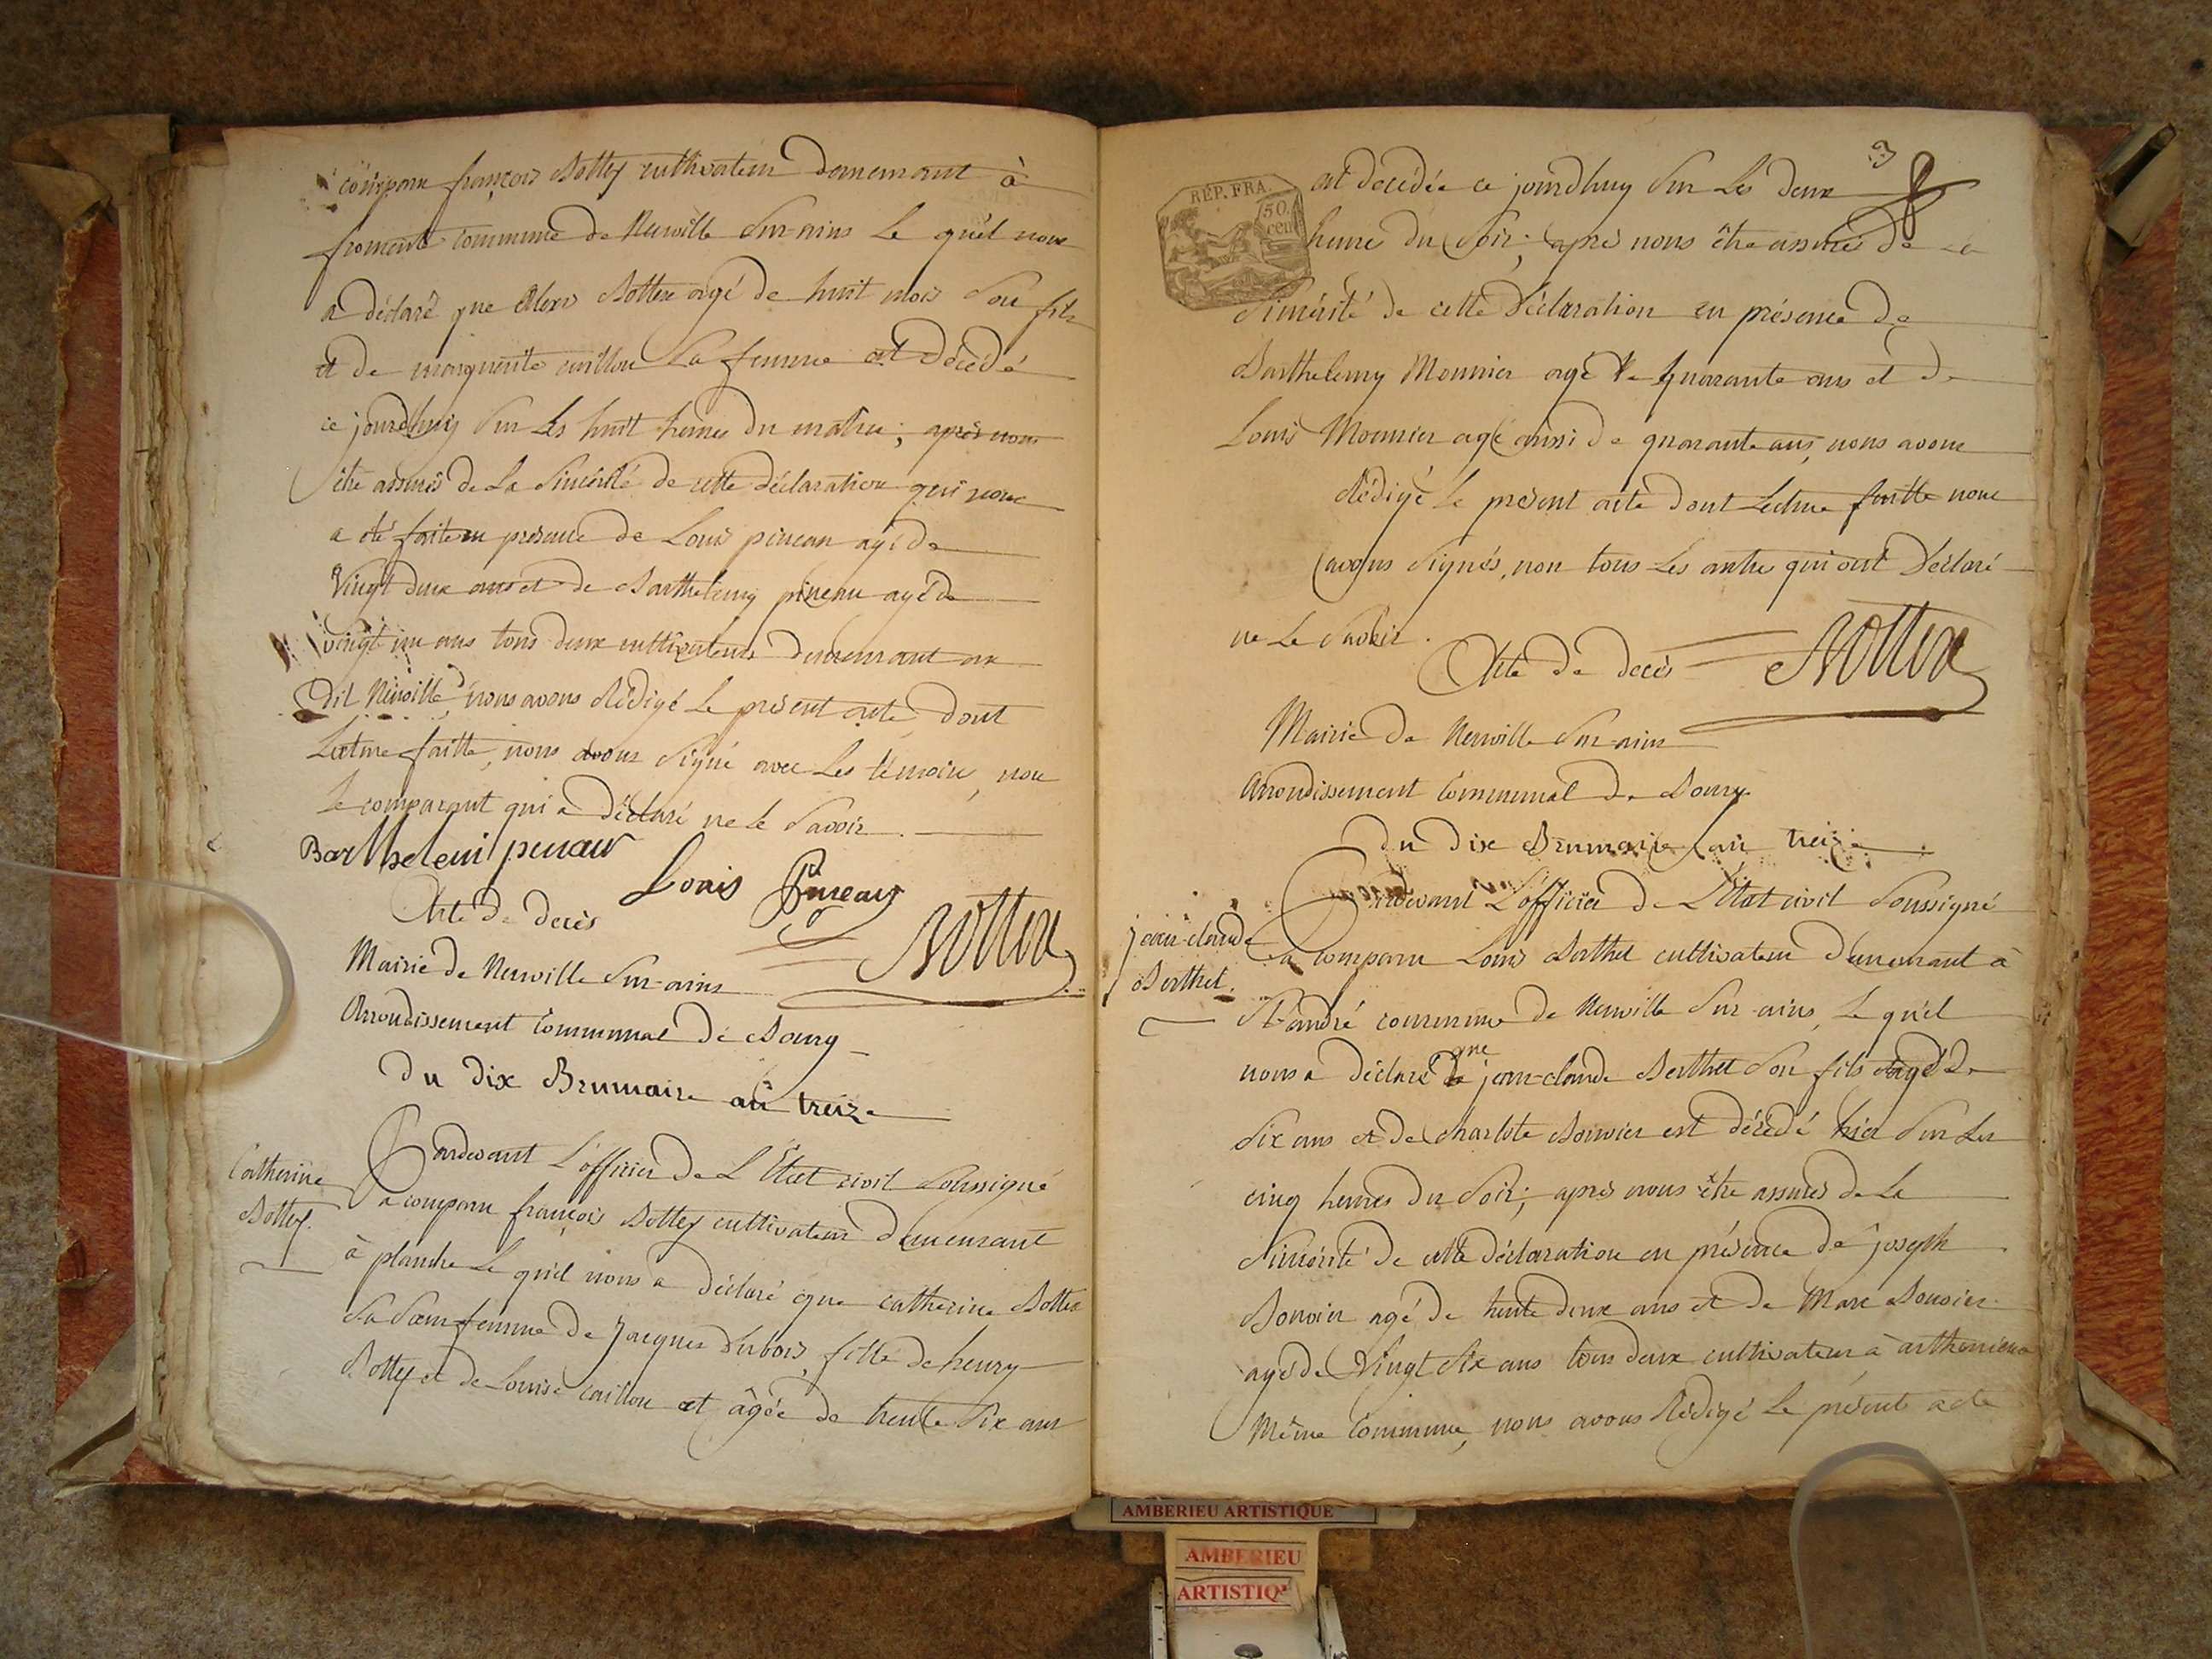 comparu françois Bottex cultivateur demeurant à
froment commune de Neuville Sur-ains Le quel nous
a déclaré que Alexis Bottex agé de huit mois Son fils
et de marguerite caillou Sa femme est décédé
ce jourdhuy Sur Les huit heures du matin; après nous
être assurés de La Sincérité de cette déclaration qui nous
a été faite en présence de Louis pineau agé de
Vingt deux ans et de Barthelemy pineau agé de
vingt un ans tous deux cultivateurs demeurant au
dit Neuville, nous avons Rédigé Le présent acte, dont
Lecture faitte, nous avons Signé avec Les témoins, non
Le comparant qui a déclaré ne le Savoir.
Barthelemi penau
Louis Pineau
Acte de decès
Mairie de Neuville Sur-ains
Arrondissement Communal de Bourg
du dix Brumaire an treize
Catherine
Bottex.
Pardevant L'officier de L'Etat civil Soussigné
a comparu françois Bottex cultivateur demeurant
à planche Le quel nous a déclaré que catherine Bottex
Sa Sœur femme de Jacques Dubois, fille de henry
Bottex et de Louise caillou et âgée de trente Six ans
3
REP. FRA.
50
cen
est decedée ce jourdhuy Sur Les deux
heures du Soir; après nous être assurés de La
Sincérité de cette déclaration en présence de
Barthelemy Mounier agé de quarante ans et de
Louis Mounier agé aussi de quarante ans, nous avons
Rédigé Le présent acte dont Lecture faitte nous
avons Signés, non tous Les autres qui ont déclaré
ne Le Savoir.
Acte de decès
Mairie de Neuville Sur-ains
Arrondissement Communal de Bourg
du dix Brumaire an treize
jean-claude
Berthet.
Pardevant L'officier de L'Etat civil Soussigné
a comparu Louis Berthet cultivateur demeurant à
St-andré commune de Neuville Sur-ains, Le quel
nous a déclaré que jean-claude Berthet Son fils agé de
Six ans et de charlote Bouvier est décédé hier Sur Les
cinq heures du Soir; après nous être assurés de La
Sincérité de cette déclaration en présence de joseph
Bouvier agé de trente deux ans et de Marc Bouvier
agé de Vingt Six ans tous deux cultivateurs à
Même Commune, nous avons Rédigé Le présent acte
AMBERIEU ARTISTIQUE
AMBERIEU
ARTISTIQ